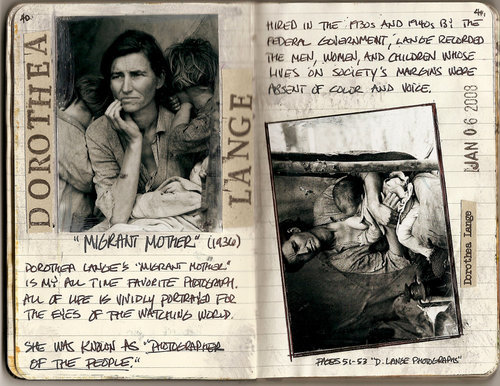 40
DOROTHEA
LANGE
"MIGRANT MOTHER" (1936)
DOROTHEA LANGE'S "MIGRANT MOTHER"
IS MY ALL TIME FAVORITE PHOTOGRAPH.
ALL OF LIFE IS VIVIDLY PORTRAYED FOR
THE EYES OF THE WATCHING WORLD.
SHE WAS KNOWN AS "PHOTOGRAPHER
OF THE PEOPLE."
41
HIRED IN THE 1930s AND 1940s BY THE
FEDERAL GOVERNMENT, LANGE RECORDED
THE MEN, WOMEN, AND CHILDREN WHOSE
LIVES ON SOCIETY'S MARGINS WERE
ABSENT OF COLOR AND VOICE.
JAN 06 2008
Dorothea Lange
PAGES 51-53 "D. LANGE PHOTOGRAPHS"